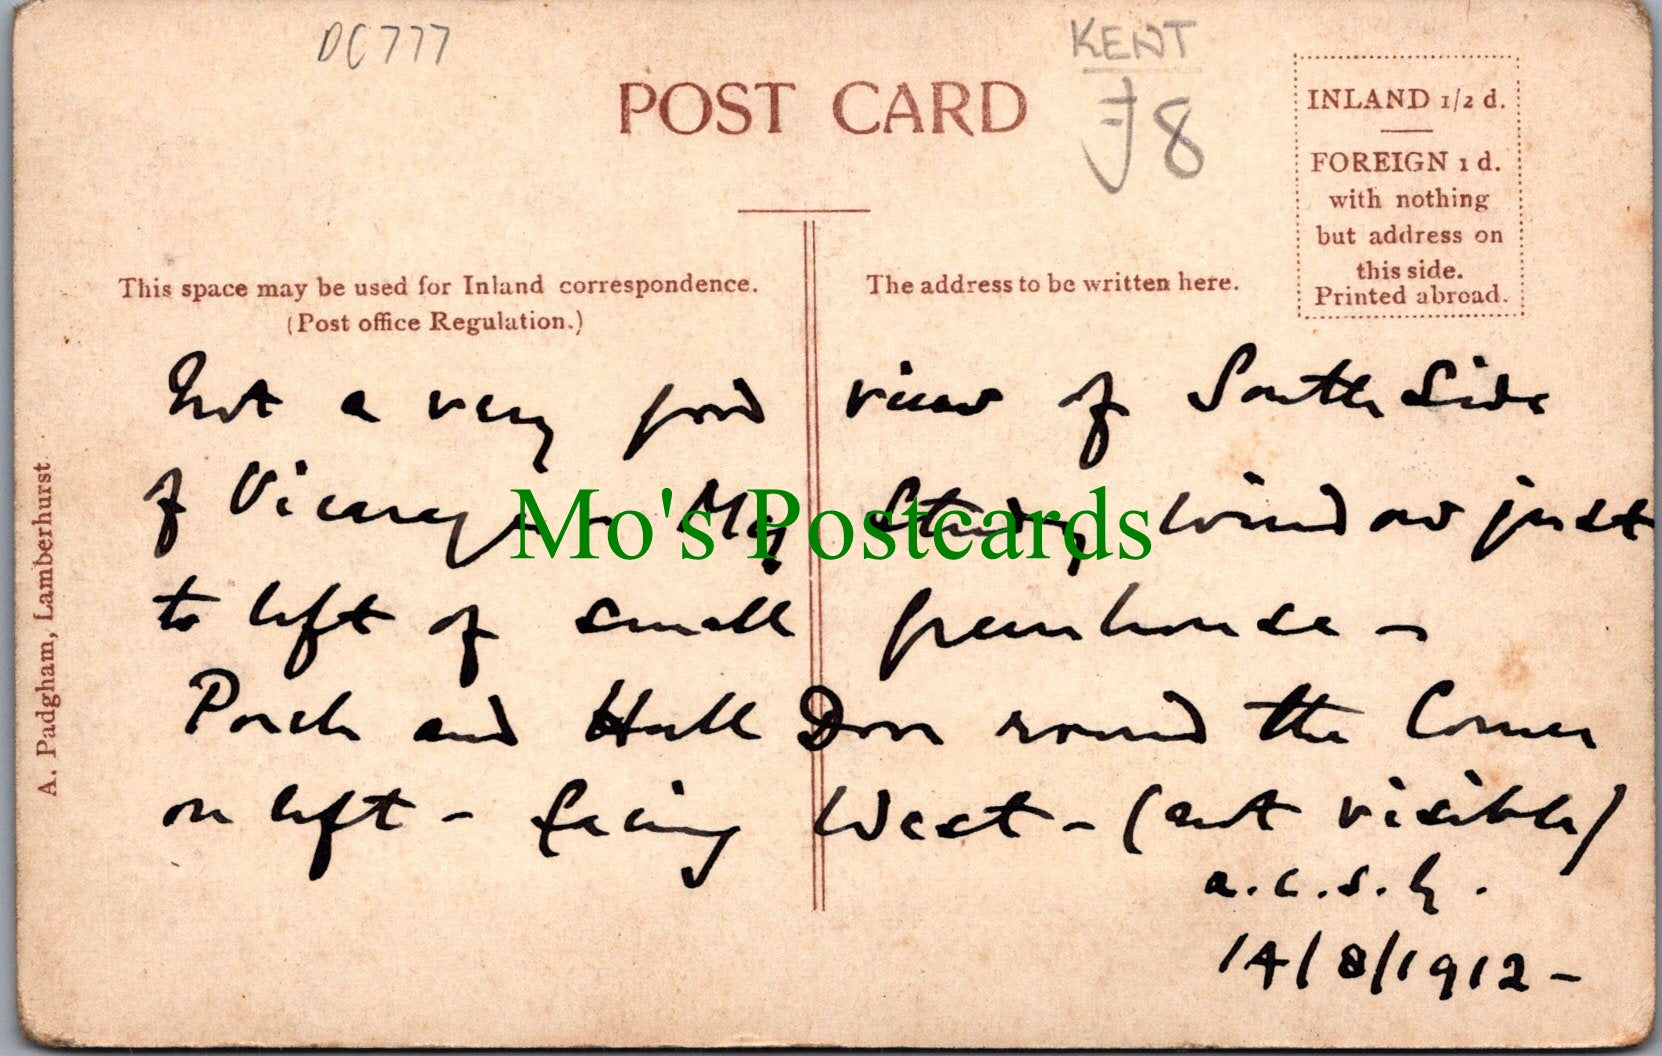 DC777
KENT
£8
POST CARD
INLAND 1/2 d.
FOREIGN 1 d.
with nothing
but address on
this side.
Printed abroad.
This space may be used for Inland correspondence.
(Post office Regulation.)
The address to be written here.
A. Padgham, Lamberhurst
Not a very good view of South Side
of Vicarage - My Study window just
to left of small greenhouse -
Porch and Hall Door round the Corner
on left - facing West - (not visible)
a.c.s.
14/8/1912 -
Mo's Postcards